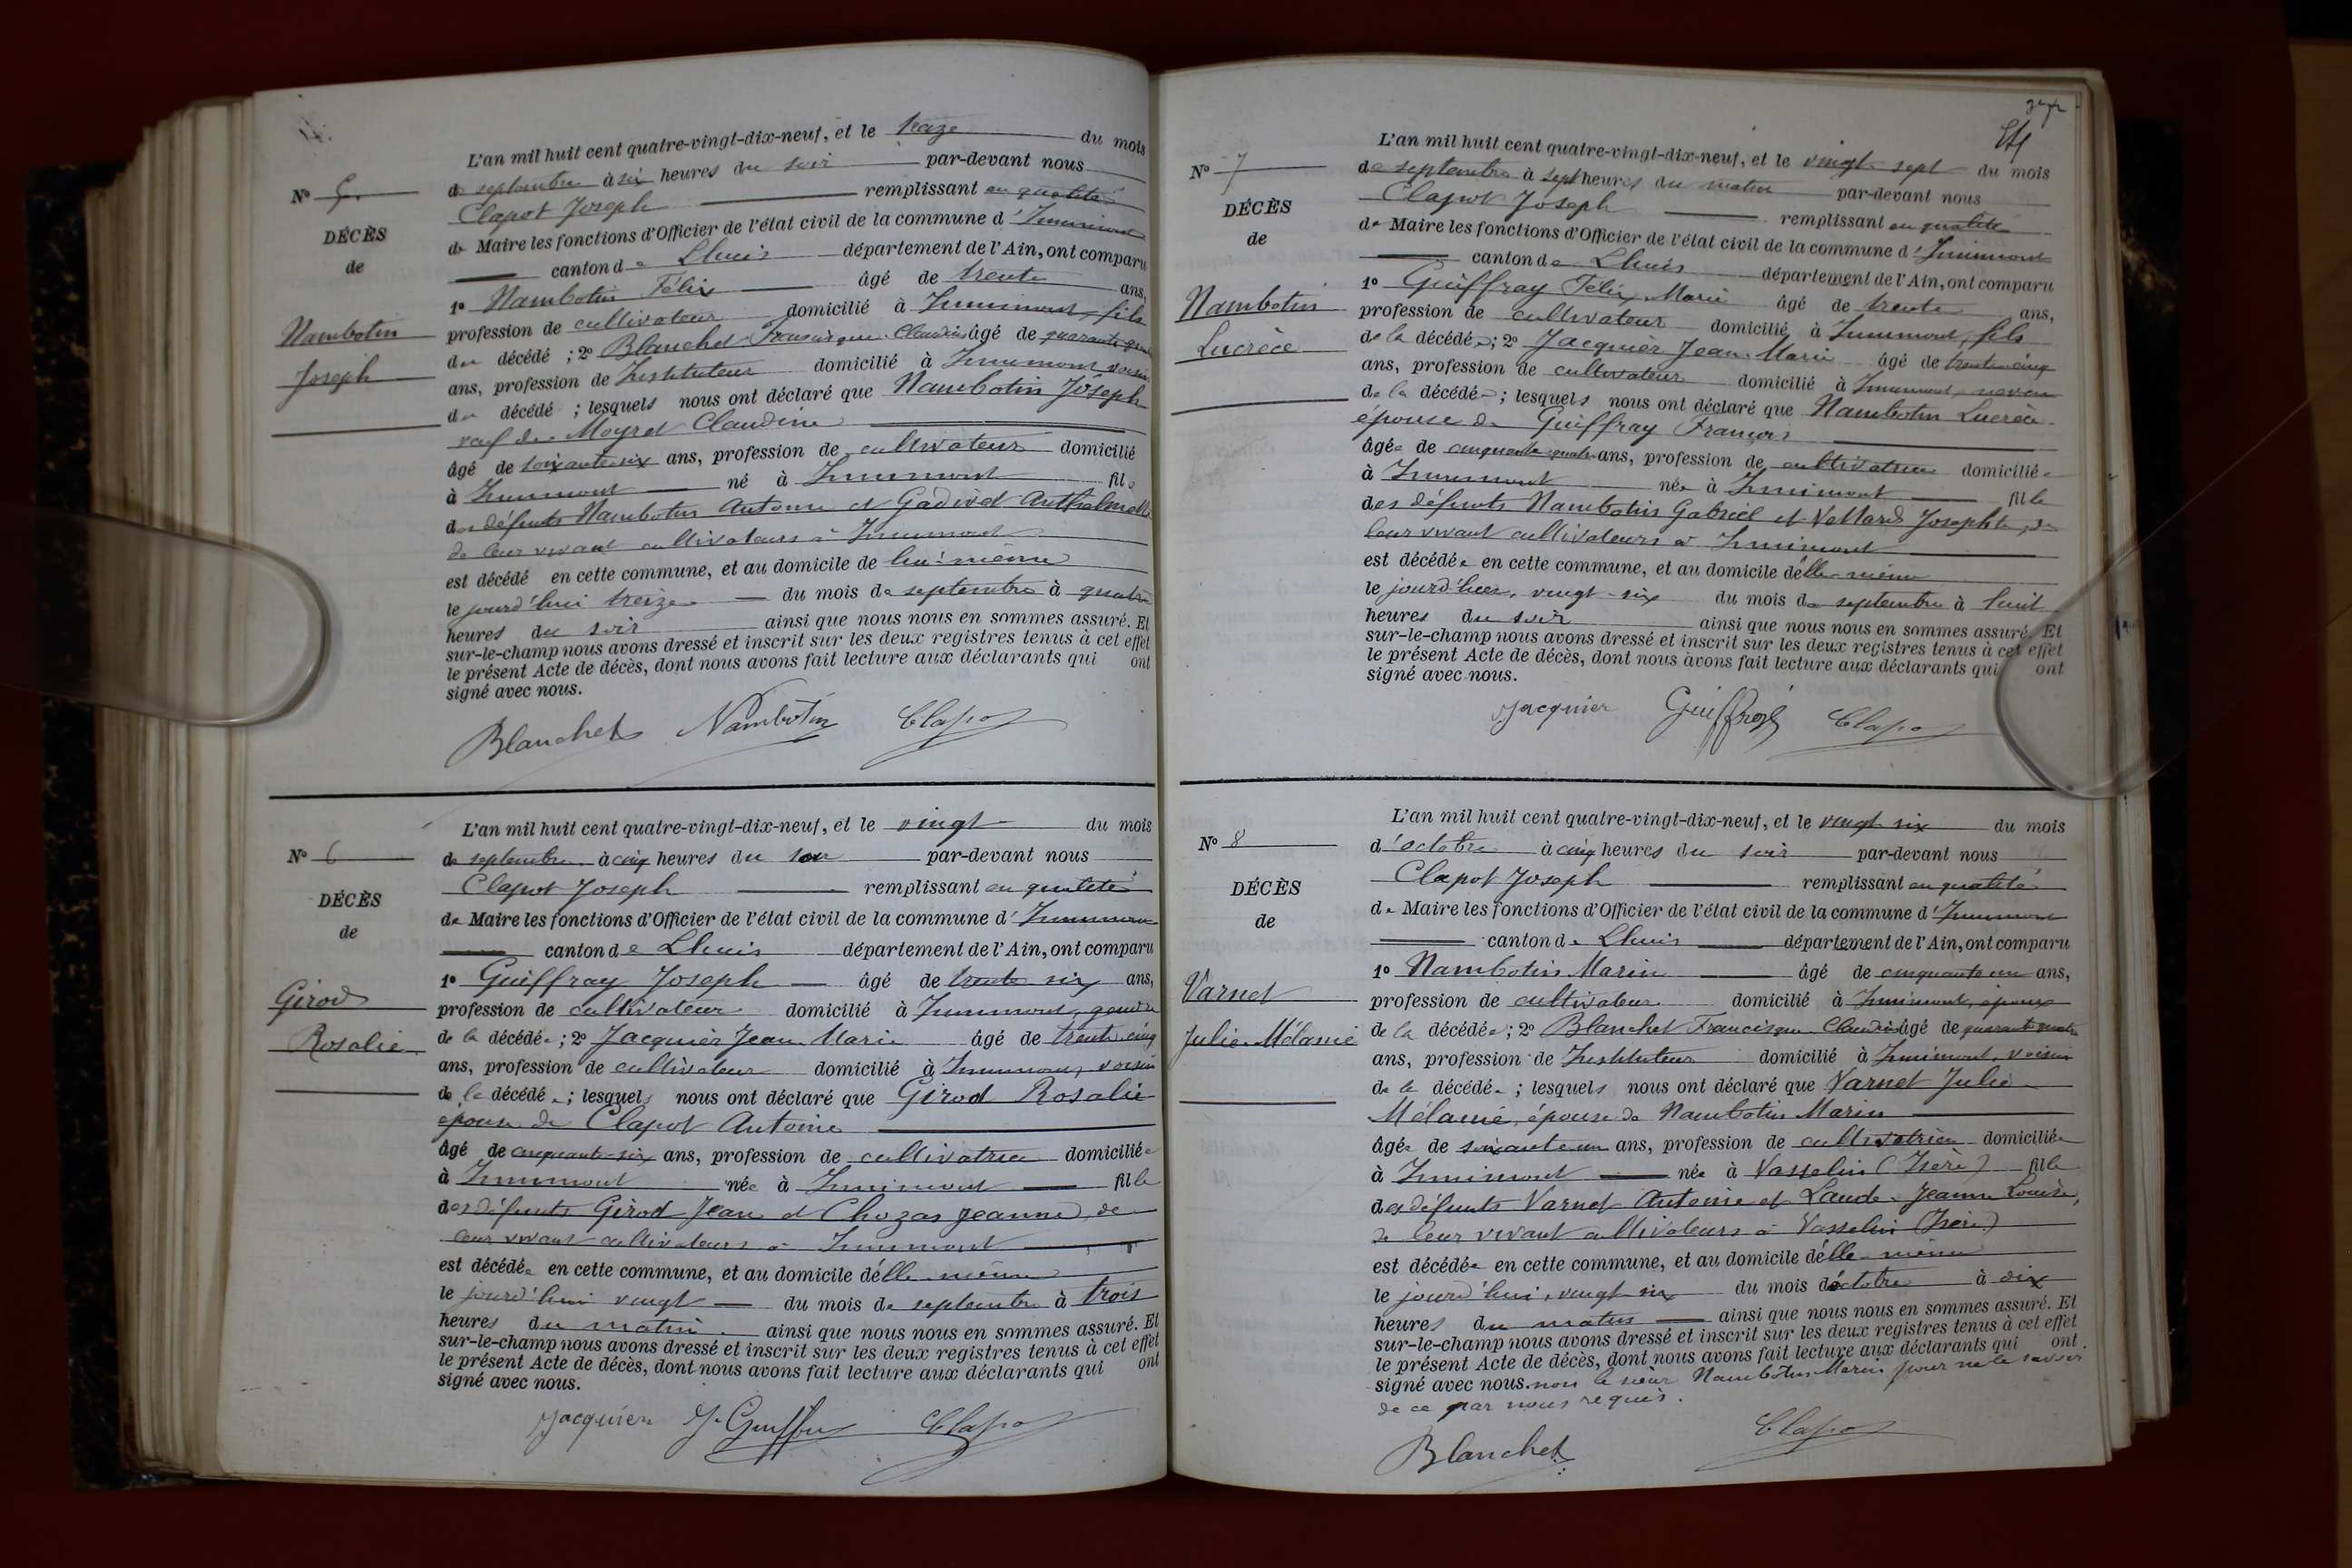 L'an mil huit cent quatre-vingt-dix-neuf, et le treize du mois
No 5.
de septembre à six heures du soir par-devant nous
Clapot Joseph remplissant en qualité
DÉCÈS
de Maire les fonctions d'Officier de l'état civil de la commune d'Innimont
de
canton de Lhuis département de l'Ain, ont comparu
1o Nambotin Félix âgé de trente ans,
Nambotin
profession de cultivateur domicilié à Innimont, fils
du décédé ; 2o Blanchet Francisque Claudius âgé de quarante quatre
Joseph
ans, profession de Instituteur domicilié à Innimont voisin
du décédé ; lesquels nous ont déclaré que Nambotin Joseph
veuf de Moyret Claudine
âgé de soixante-six ans, profession de cultivateur domicilié
à Innimont né à Innimont fils
des défunts Nambotin Antoine et Gadivet Anthelmette
de leur vivant cultivateurs à Innimont
est décédé en cette commune, et au domicile de lui-même
le jourd'hui treize du mois de septembre à quatre
heures du soir ainsi que nous nous en sommes assuré. Et
sur-le-champ nous avons dressé et inscrit sur les deux registres tenus à cet effet
le présent Acte de décès, dont nous avons fait lecture aux déclarants qui ont
signé avec nous.
Blanchet Nambotin Clapot
L'an mil huit cent quatre-vingt-dix-neuf, et le vingt du mois
No 6
de septembre à cinq heures du soir par-devant nous
Clapot Joseph remplissant en qualité
DÉCÈS
de Maire les fonctions d'Officier de l'état civil de la commune d'Innimont
de
canton de Lhuis département de l'Ain, ont comparu
1o Guiffray Joseph âgé de trente six ans,
Girod
profession de cultivateur domicilié à Innimont, gendre
Rosalie
de la décédée ; 2o Jacquier Jean Marie âgé de trente cinq
ans, profession de cultivateur domicilié à Innimont, voisin
de la décédée ; lesquels nous ont déclaré que Girod Rosalie
épouse de Clapot Antoine
âgé de cinquante-six ans, profession de cultivatrice domiciliée
à Innimont née à Innimont fille
des défunts Girod Jean et Chozas Jeanne, de
leur vivant cultivateurs à Innimont
est décédée en cette commune, et au domicile d'elle-même
le jourd'hui vingt du mois de septembre à trois
heures du matin ainsi que nous nous en sommes assuré. Et
sur-le-champ nous avons dressé et inscrit sur les deux registres tenus à cet effet
le présent Acte de décès, dont nous avons fait lecture aux déclarants qui ont
signé avec nous.
Jacquier J. Guiffray Clapot
L'an mil huit cent quatre-vingt-dix-neuf, et le vingt-sept du mois
No 7
de septembre à sept heures du matin par-devant nous
Clapot Joseph remplissant en qualité
DÉCÈS
de Maire les fonctions d'Officier de l'état civil de la commune d'Innimont
de
canton de Lhuis département de l'Ain, ont comparu
1o Guiffray Félix Marie âgé de trente ans,
Nambotin
profession de cultivateur domicilié à Innimont, fils
Lucrèce
de la décédée ; 2o Jacquier Jean Marie âgé de trente-cinq
ans, profession de cultivateur domicilié à Innimont, neveu
de la décédée ; lesquels nous ont déclaré que Nambotin Lucrèce
épouse de Guiffray François
âgée de cinquante-quatre ans, profession de cultivatrice domiciliée
à Innimont née à Innimont fille
des défunts Nambotin Gabriel et Vettard Josephte, de
leur vivant cultivateurs à Innimont
est décédée en cette commune, et au domicile d'elle-même
le jourd'hier, vingt-six du mois de septembre à huit
heures du soir ainsi que nous nous en sommes assuré. Et
sur-le-champ nous avons dressé et inscrit sur les deux registres tenus à cet effet
le présent Acte de décès, dont nous avons fait lecture aux déclarants qui ont
signé avec nous.
Jacquier Guiffray Clapot
L'an mil huit cent quatre-vingt-dix-neuf, et le vingt six du mois
No 8
d'octobre à cinq heures du soir par-devant nous
Clapot Joseph remplissant en qualité
DÉCÈS
de Maire les fonctions d'Officier de l'état civil de la commune d'Innimont
de
canton de Lhuis département de l'Ain, ont comparu
1o Nambotin Marin âgé de cinquante un ans,
Varnet
profession de cultivateur domicilié à Innimont, époux
Julie Mélanie
de la décédée ; 2o Blanchet Francisque Claudius âgé de quarante quatre
ans, profession de Instituteur domicilié à Innimont, voisin
de la décédée ; lesquels nous ont déclaré que Varnet Julie
Mélanie, épouse de Nambotin Marin
âgée de soixante un ans, profession de cultivatrice domiciliée
à Innimont née à Vasselin (Isère) fille
des défunts Varnet Antoine et Laude Jeanne Louise,
de leur vivant cultivateurs à Vasselin (Isère)
est décédée en cette commune, et au domicile d'elle-même
le jourd'hui, vingt six du mois d'octobre à dix
heures du matin ainsi que nous nous en sommes assuré. Et
sur-le-champ nous avons dressé et inscrit sur les deux registres tenus à cet effet
le présent Acte de décès, dont nous avons fait lecture aux déclarants qui ont
signé avec nous. non le sieur Nambotin Marin pour ne le savoir
de ce par nous requis.
Blanchet Clapot